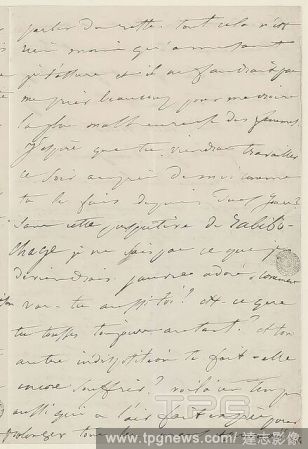 parler du reste. tout cela n'est
rien moins qu'amusant
je t'assure et il ne faudrait pas
me prier beaucoup pour me dire
la plus malheureuse des femmes
J'espère que tu viendras travailler
ce soir auprès de moi comme
tu le fais depuis
Sans cette perspective de
je ne sais pas ce que je
deviendrais, pauvre adoré, comment
vas-tu aussi toi ? Est-ce que
tu tousses toujours autant ? et ton
autre indisposition te fait-elle
encore souffrir ? voilà un temps
aussi qui a l'air fait exprès pour
prolonger tous les
TPG
www.tpgnews.com 達志影像